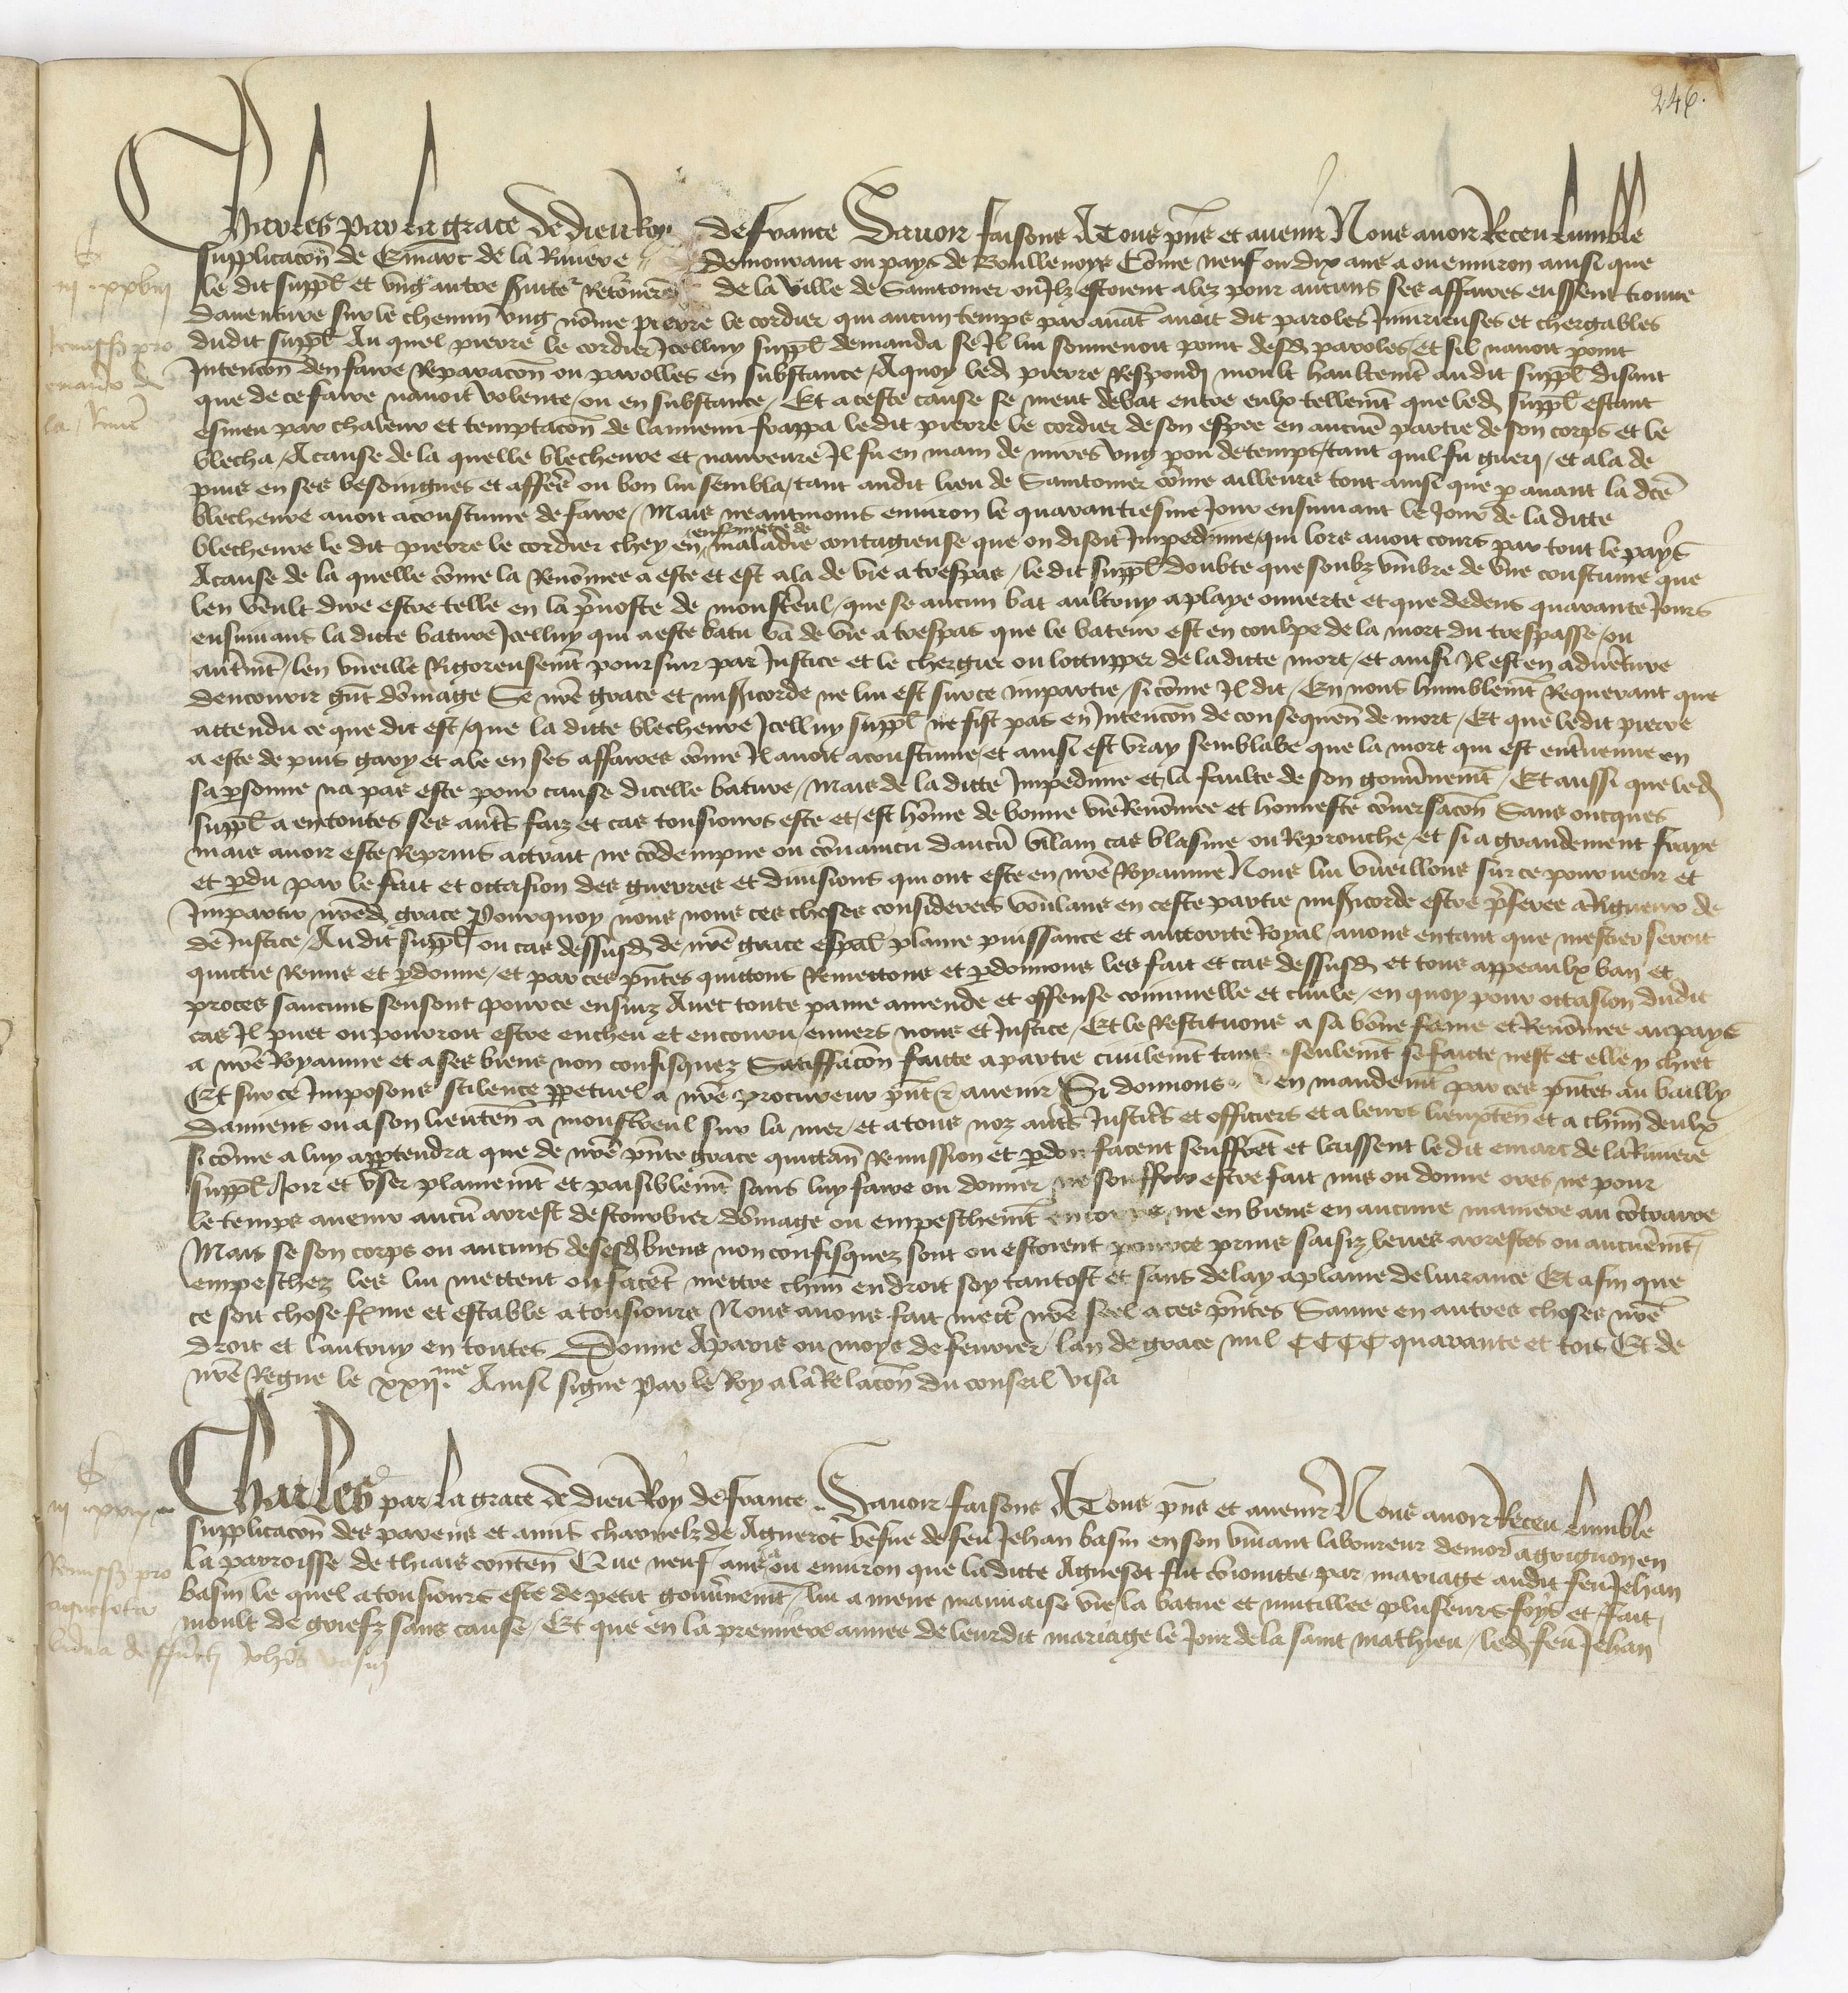 246.
Charles par la grace de dieu Roy de france Savoir faisons A Tous pñs et avenir Nous avoir Receu lumble
supplicacõn de Emart de la Riviere demourant ou pays de Boullenoys Cõme neuf ou dix ans a ou environ ainsi que
le dit suppl et ung autre retõrnẽs de la ville de Saintomer ou Ilz estoient alez pour aucuns ses affaires eussent trouve
daventure sur le chemin ung nõme pierre le cordier qui aucun temps par avãt avoit dit paroles Iniurieuses et chergables
dudit suppl Au quel pierre le cordier Icelluy suppl demanda se Il lui souvenoit point desd paroles / et sil navoit point
Intencõn den faire Reparacõn ou parolles en substance / A quoy led pierre Respondi moult haultemt audit suppl disant
que de ce faire navoit volente / ou en substance / Et a ceste cause se meut debat entre eulx tellemt que led suppl estant
esmeu par chaleur et temptacõn de lannemi frappa ledit pierre le cordier de son espee en aucuñe partie de son corps et le
blecha / A cause de la quelle blecheure et navreure Il fu en main de mires ung pou de temps / tant quil fu gueri / et ala de
puis en ses besoingnes et affẽrs ou bon lui sembla / tant audit lieu de Saintomer cõme ailleurs tout ainsi que p avant la dcẽ
blecheure avoit acoustume de faire / Mais neantmoins environ le quarantiesme Jour ensuivant le Jour de la ditte
blecheure le dit pierre le cordier chey en maladie contagieuse que on disoit Impedimie / qui lors avoit cours par tout le pays
A cause de la quelle cõme la Renõmee a este et est ala de vie a trespas / le dit suppl doubte que soubz umbre de une coustume que
len veult dire estre telle en la pvoste de monstereul / que se aucun bat aultruy a playe ouverte et que dedens quarante Jours
ensuivans la ditte bature Icelluy qui a este batu va de vie a trespas que le bateur est en coulpe de la mort du trespasse / ou
autremt / len vueille Rigoreusemt poursuir par Justice et le chergier ou lottupper de la ditte mort / et ainsi Il est en adventure
dencourir gñt dõmage Se nrẽ grace et misericorde ne lui est sur ce impartie / si cõme Il dit / En nous humblemt Requerant que
attendu ce que dit est / que la ditte blecheure Icelluy suppl ne fist pas en Intencõn de consequeñ de mort / Et que ledit pierre
a este de puis gary et ale en ses affaires cõme Il avoit acoustume / et ainsi est vray semblable que la mort qui est entrevenue en
sa psonne na pas este pour cause dicelle bature / Mais de la ditte Impedimie et la faulte de son gouvernemt / Et aussi que led
suppl a en toutes ses autrs faiz et cas tousiours este et est hõme de bonne vie Renõmee et honneste cõversacõn Sans oncques
mais avoir este Reprins actrait ne cõdempne ou cõvaincu daucũ vilain cas blasme ou Reprouche / et si a grandement fraye
et pdu par le fait et occasion des guerres et divisions qui ont este en nrẽ Royaume Nous lui vueillons sur ce pourveoir et
Impartir nrẽd grace Pourquoy nous nous ces choses considerees voulans en ceste partie misericorde estre pferee a Rigueur de
de Justice / Au dit suppl ou cas dessusd de nrẽ grace espal plaine puissance et auctorite Royal / avons en tant que mestier seroit
quictie Remis et pdonne / et par ces pñtes quittons Remettons et pdonnons les fait et cas dessusd et tous appeaulx ban et
proces saucuns sensont pour ce ensuiz Avec toute paine amende et offense criminelle et civile / en quoy pour occasion dudit
cas Il puet ou pourroit estre encheu et encouru / envers nous et Justice / Et le Restituons a sa bonne fame et Renõmee au pays
a nrẽ Royaume et a ses biens non confisquez Satisfacõn faitte a partie civilemt tant seulemt se faicte nest et elle y chiet
Et sur ce Imposons scilence ppetuel a nrẽ procureur pñt et avenir Si donnons en mandemt par ces pñtes au bailly
damiens ou a son lieuteñ a monstreul sur la mer / et a tous noz autrs Justicrs et officiers et a leurs lieuxteñ et a chũn deulx
si cõme a luy apptendra que de nrẽ pñte grace quittañ Remission et pdon facent seuffrẽt et laissent ledit emart de la Riviere
suppl Joir et user plainemt et paisiblemt sans luy faire ou donner ne souffrir estre fait mis ou donne ores ne pour
le temps avenir aucũ arrest destourbier dõmage ou empeschemt en corps ne en biens en aucune maniere au cõtraire
Mais se son corps ou aucuns de sesd biens non confisquez sont ou estoient pour ce prins saisiz levez arrestes ou aucunemt
empeschez les lui mettent ou facẽt mettre chũn endroit soy tantost et sans delay a plaine delivrance Et afin que
ce soit chose ferme et estable a tousiours Nous avons fait mectr nrẽ seel a ces pñtes Sauve en autres choses nrẽ
droit et lautruy en toutes Donne A paris ou moys de fevrier lan de grace mil CCCC quarante et trois Et de
nrẽ Regne le xxii me Ainsi signe Par le Roy a la Relacõn du conseil visa
iii xxviii
Remissio pro
emardo de
la Rivie
Charles par la grace de dieu Roy de france Savoir faisons A Tous pñs et avenir Nous avoir Receu lumble
supplicacõn des parens et amis charnelz de Agnesot vefve de feu Jehan basin en son vivant laboureur demor a grignon en
la parroisse de thiais conteñ Que neuf ans a ou environ que la ditte Agnesot fut cõioincte par mariage audit feu Jehan
basin le quel a tousiours este de petit gouvernemt / lui a mene mauvaise vie / la batue et mutillee pluseurs foys et fait
moult de griefz sans cause / Et que en la premiere annee de leurdit mariage le Jour de la saint mathieu / led feu Jehan
iii xxix
Remissio pro
agnesota
vidua deffuncti Johis basin